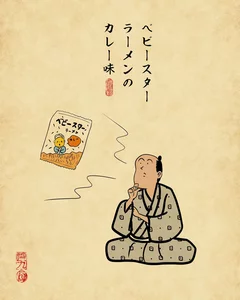 ベビースター
ラーメンの
カレー味
ベビースター
ラーメン